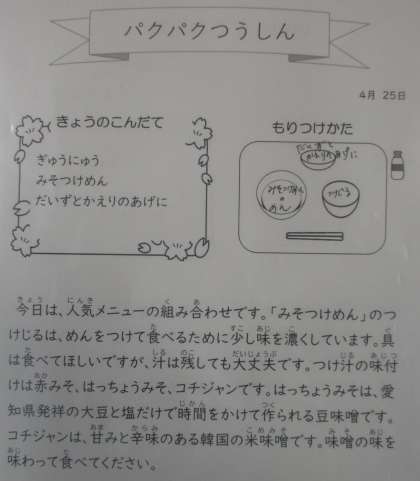 パクパクつうしん
4月 25日
きょうのこんだて
ぎゅうにゅう
みそつけめん
だいずとかえりのあげに
もりつけかた
だいずと
かえりのあげに
みそつけめん
の
めん
つけじる
今日は、人気メニューの組み合わせです。「みそつけめん」のつ
けじるは、めんをつけて食べるために少し味を濃くしています。具
は食べてほしいですが、汁は残しても大丈夫です。つけ汁の味付
けは赤みそ、はっちょうみそ、コチジャンです。はっちょうみそは、愛
知県発祥の大豆と塩だけで時間をかけて作られる豆味噌です。
コチジャンは、甘みと辛味のある韓国の米味噌です。味噌の味を
味わって食べてください。